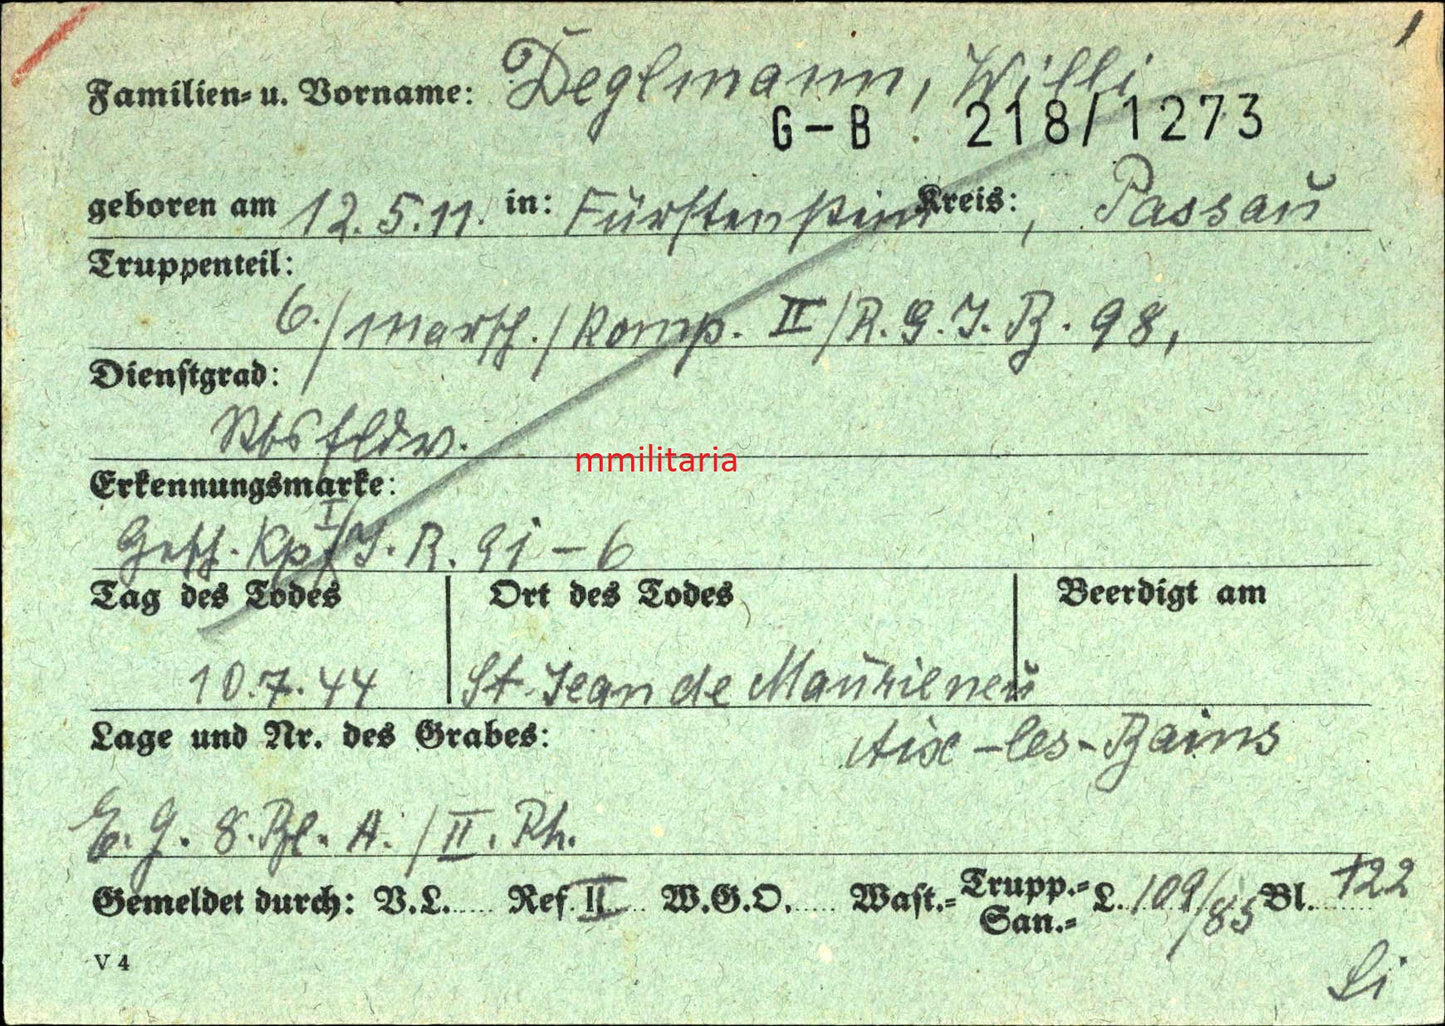 Familien- u. Vorname: Deglmann, Willi
G-B 218/1273
geboren am 12.5.11. in: Fürstenstein Kreis: , Passau
Truppenteil:
6./Marsch./Komp. II/R.G.J.B. 98,
Dienstgrad:
Obsfldw.
mmilitaria
Erkennungsmarke:
Gesch. Kp I/J.R. 91-6
Tag des Todes Ort des Todes Beerdigt am
10.7.44 St. Jean de Maurienne
Lage und Nr. des Grabes: Aix-les-Bains
E. G. 8. Bl. A. / II. Rh.
Gemeldet durch: V.L. Ref II W.G.O. Wast.= Trupp.= San.= L. 109/85 Bl. 122
V 4 Li